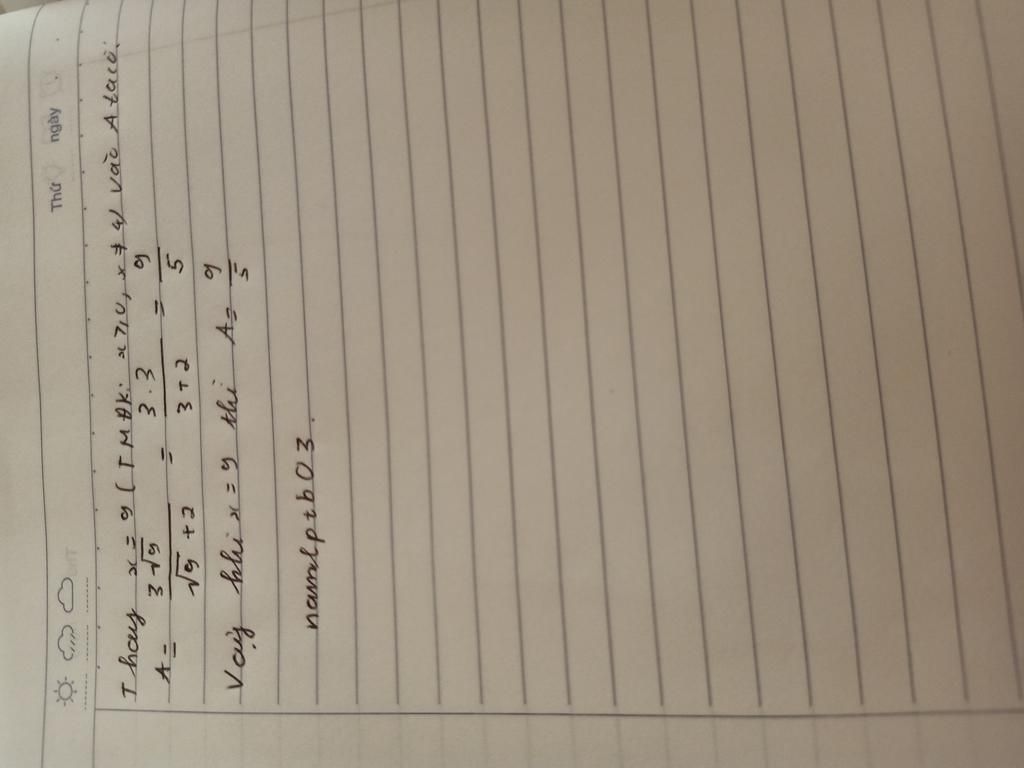 Thứ ngày
Thay x = 9 (TMĐK: x ≥ 0, x ≠ 4) vào A ta có:
A = 3√9 / √9 + 2 = 3 . 3 / 3 + 2 = 9 / 5
Vậy khi x = 9 thì A = 9 / 5
namlptb03.